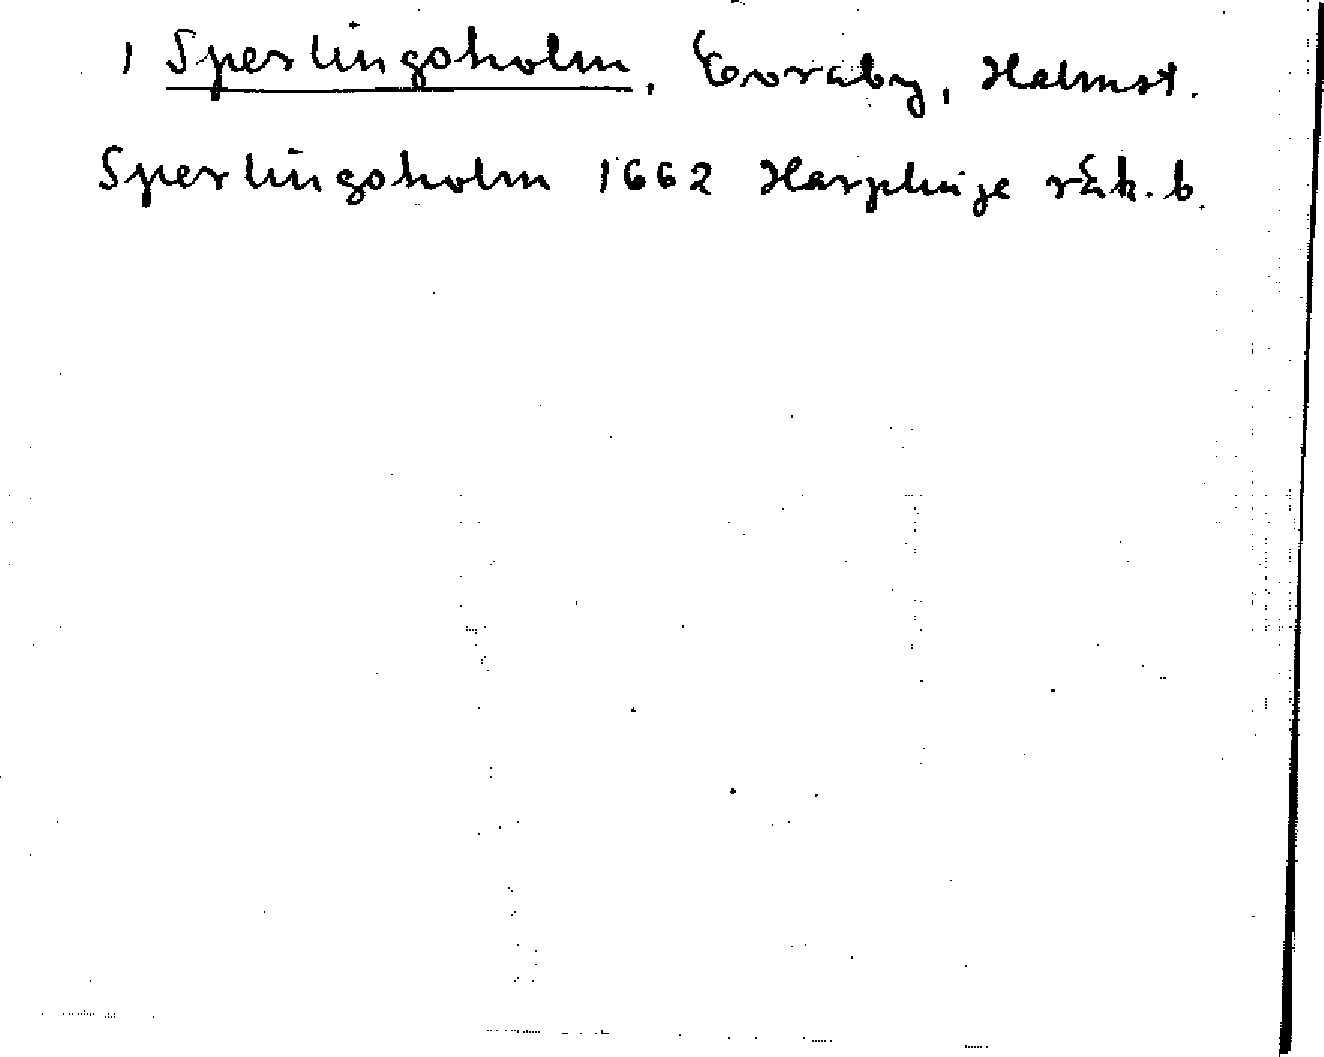 1 Sperlingsholm, Övraby, Halmst.
Sperlingsholm 1662 Harplinge räk. b.